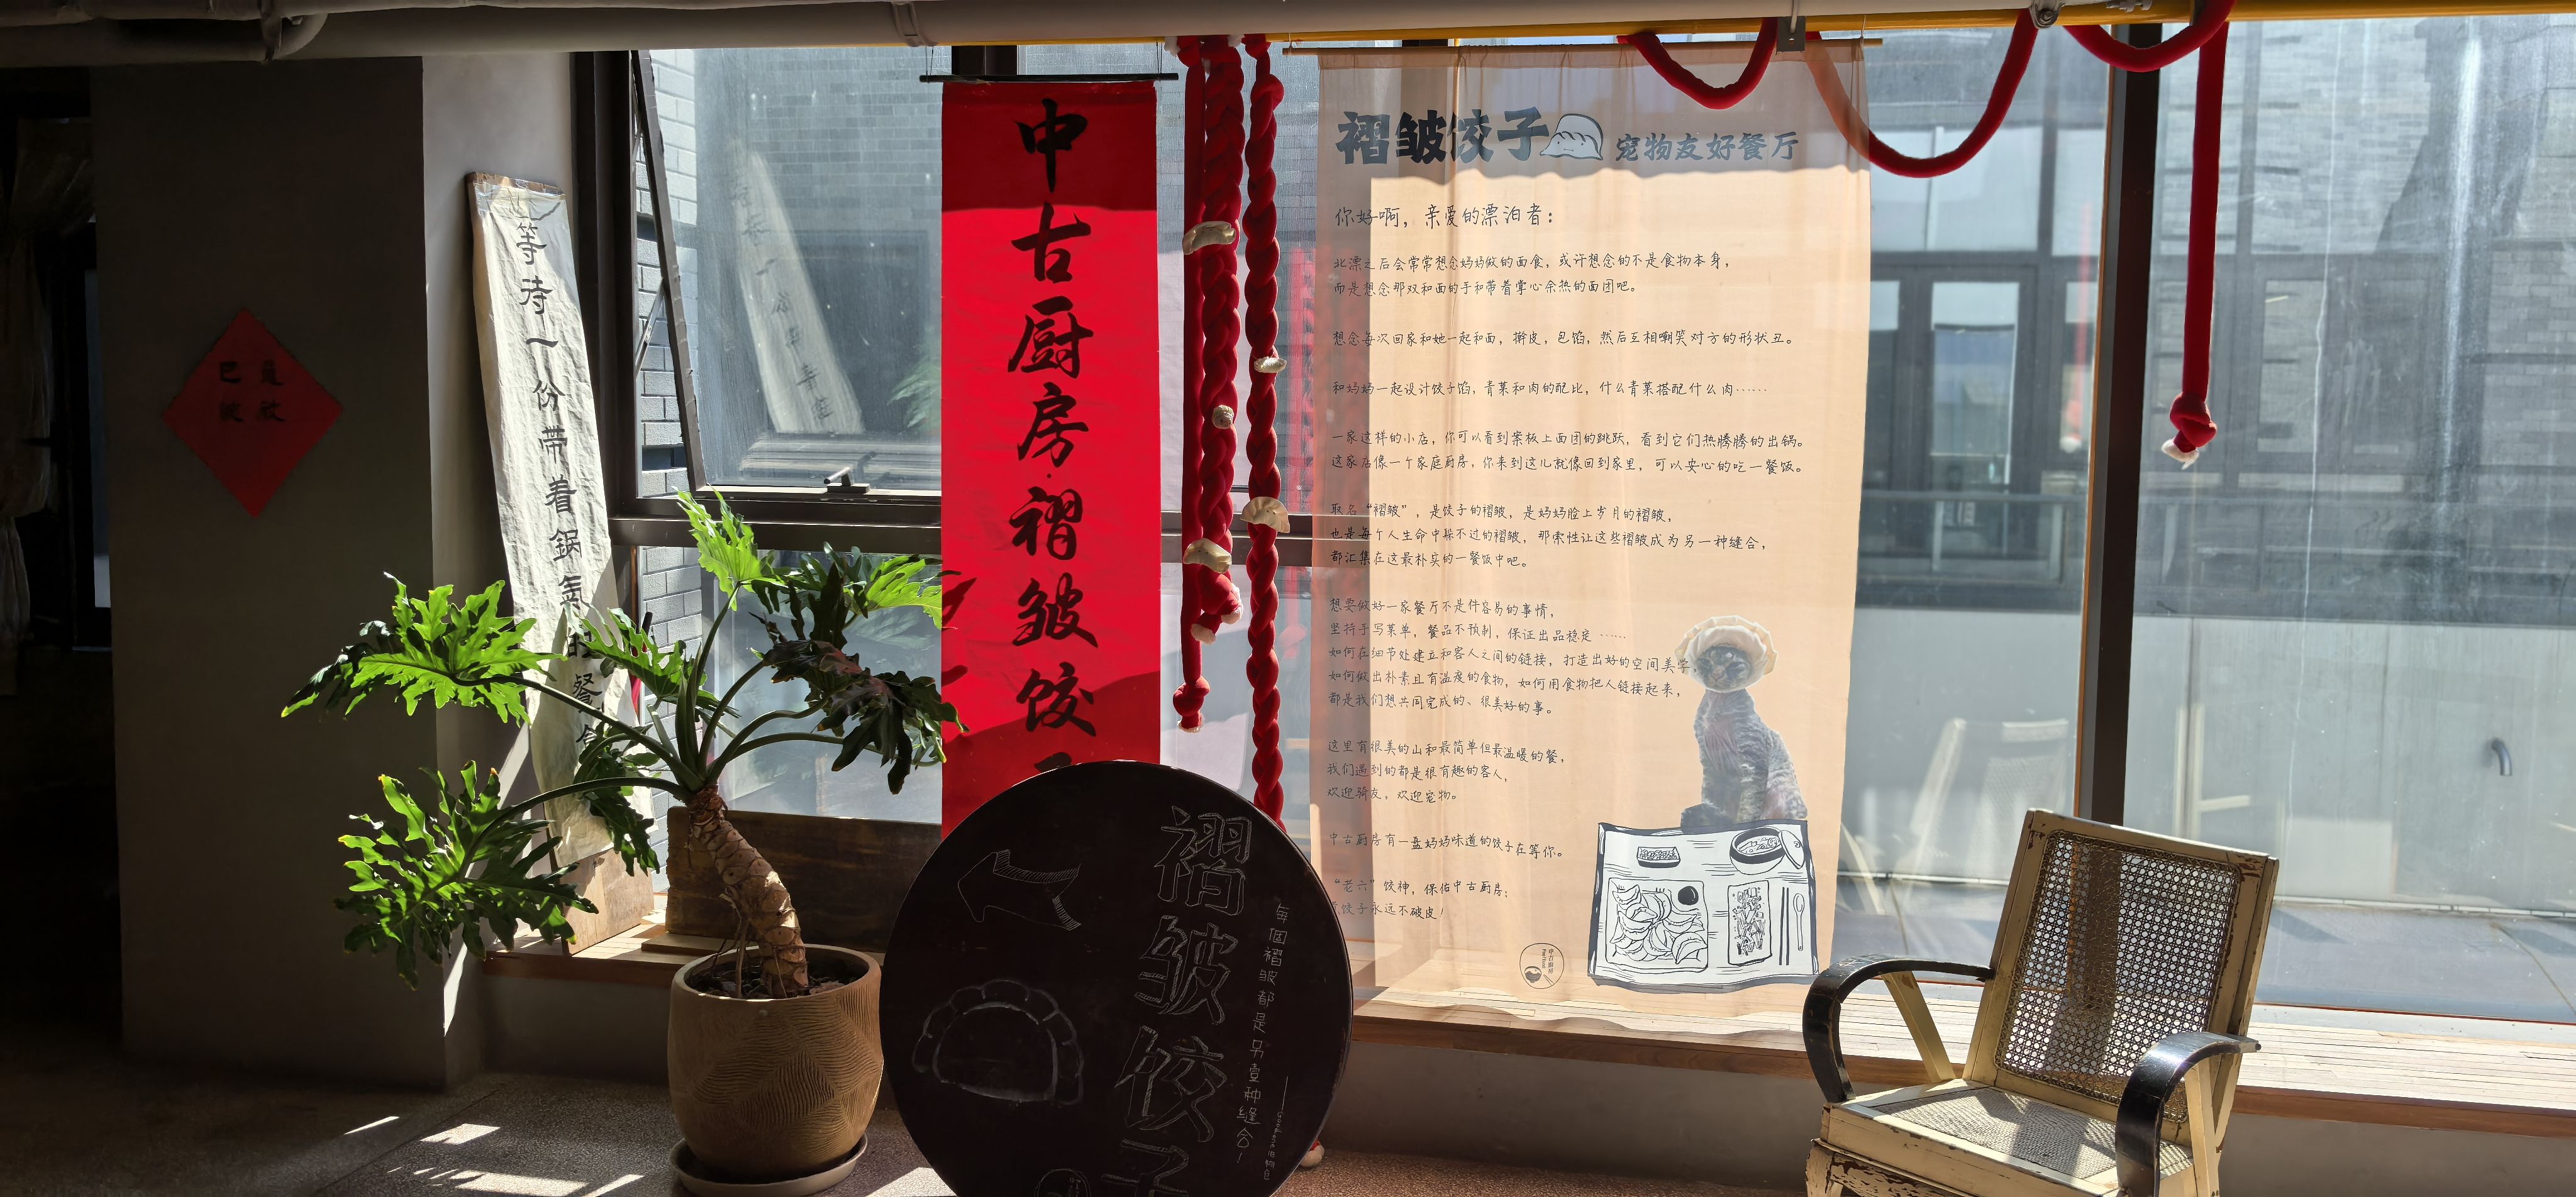 等待一份带着锅氣的餐食
中古厨房·褶皱饺子
褶皱饺子 宠物友好餐厅
你好啊，亲爱的漂泊者：
北漂之后会常常想念妈妈做的面食，或许想念的不是食物本身，
而是想念那双和面的手和带着掌心余热的面团吧。
想念每次回家和她一起和面，擀皮，包馅，然后互相嘲笑对方的形状丑。
和妈妈一起设计饺子馅，青菜和肉的配比，什么青菜搭配什么肉……
一家这样的小店，你可以看到案板上面团的跳跃，看到它们热腾腾的出锅。
这家店像一个家庭厨房，你来到这儿就像回到家里，可以安心的吃一餐饭。
取名“褶皱”，是饺子的褶皱，是妈妈脸上岁月的褶皱，
也是每个人生命中躲不过的褶皱，那索性让这些褶皱成为另一种缝合，
都汇集在这最朴实的一餐饭中吧。
想要做好一家餐厅不是件容易的事情，
坚持手写菜单，餐品不预制，保证出品稳定……
如何在细节处建立和客人之间的链接，打造出好的空间美学，
如何做出朴素且有温度的食物，如何用食物把人链接起来，
都是我们想共同完成的、很美好的事。
这里有很美的山和最简单但最温暖的餐，
我们遇到的都是很有趣的客人，
欢迎骑友，欢迎宠物。
中古厨房有一盘妈妈味道的饺子在等你。
“老六”饺神，保佑中古厨房：
煮饺子永远不破皮！
褶皱饺子
每個褶皱都是另壹种缝合！